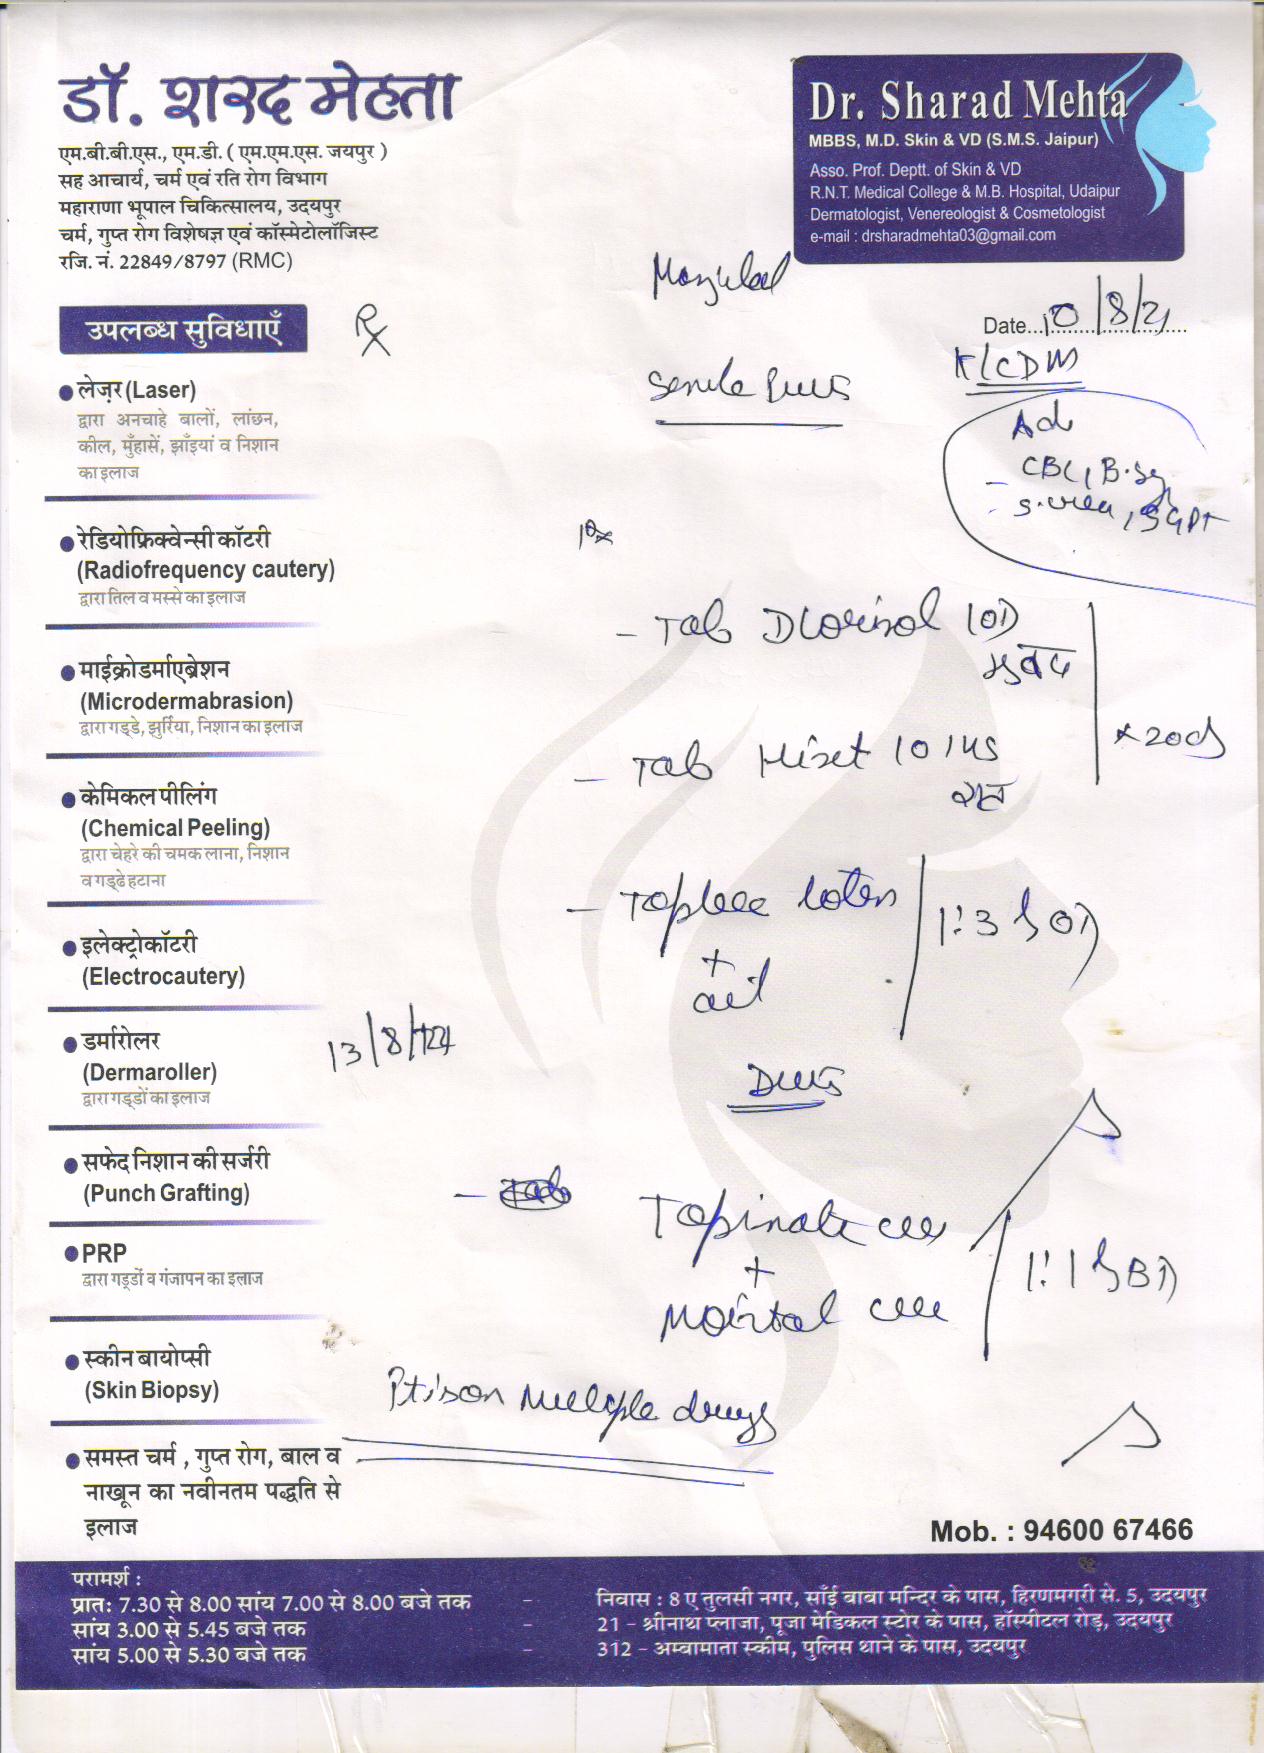 डॉ. शरद मेहता
एम.बी.बी.एस., एम.डी. ( एम.एम.एस. जयपुर )
सह आचार्य, चर्म एवं रति रोग विभाग
महाराणा भूपाल चिकित्सालय, उदयपुर
चर्म, गुप्त रोग विशेषज्ञ एवं कॉस्मेटोलॉजिस्ट
रजि. नं. 22849/8797 (RMC)
Dr. Sharad Mehta
MBBS, M.D. Skin & VD (S.M.S. Jaipur)
Asso. Prof. Deptt. of Skin & VD
R.N.T. Medical College & M.B. Hospital, Udaipur
Dermatologist, Venereologist & Cosmetologist
e-mail : drsharadmehta03@gmail.com
Date... 10/8/21
K/C DM
Adv
CBC, B.Sg
S.urea, SGPT
Rx
- Tab 1OD
सुबह
- Tab 10 1HS
रात
x 20d
lotion
+
oil
1:3 OD
13/8/
+
1:1 BD
Pt is on multiple drugs
उपलब्ध सुविधाएँ
लेज़र (Laser)
द्वारा अनचाहे बालों, लांछन,
कील, मुँहासें, झाँइयां व निशान
का इलाज
रेडियोफ्रिक्वेन्सी कॉटरी
(Radiofrequency cautery)
द्वारा तिल व मस्से का इलाज
माईक्रोडर्माएब्रेशन
(Microdermabrasion)
द्वारा गड्डे, झुर्रिया, निशान का इलाज
केमिकल पीलिंग
(Chemical Peeling)
द्वारा चेहरे की चमक लाना, निशान
व गड्ढे हटाना
इलेक्ट्रोकॉटरी
(Electrocautery)
डर्मारोलर
(Dermaroller)
द्वारा गड्डों का इलाज
सफेद निशान की सर्जरी
(Punch Grafting)
PRP
द्वारा गड्डों व गंजापन का इलाज
स्कीन बायोप्सी
(Skin Biopsy)
समस्त चर्म , गुप्त रोग, बाल व
नाखून का नवीनतम पद्धति से
इलाज
Mob. : 94600 67466
परामर्श :
प्रातः 7.30 से 8.00 सांय 7.00 से 8.00 बजे तक - निवास : 8 ए तुलसी नगर, साँई बाबा मन्दिर के पास, हिरणमगरी से. 5, उदयपुर
सांय 3.00 से 5.45 बजे तक - 21 - श्रीनाथ प्लाजा, पूजा मेडिकल स्टोर के पास, हॉस्पीटल रोड़, उदयपुर
सांय 5.00 से 5.30 बजे तक - 312 - अम्बामाता स्कीम, पुलिस थाने के पास, उदयपुर